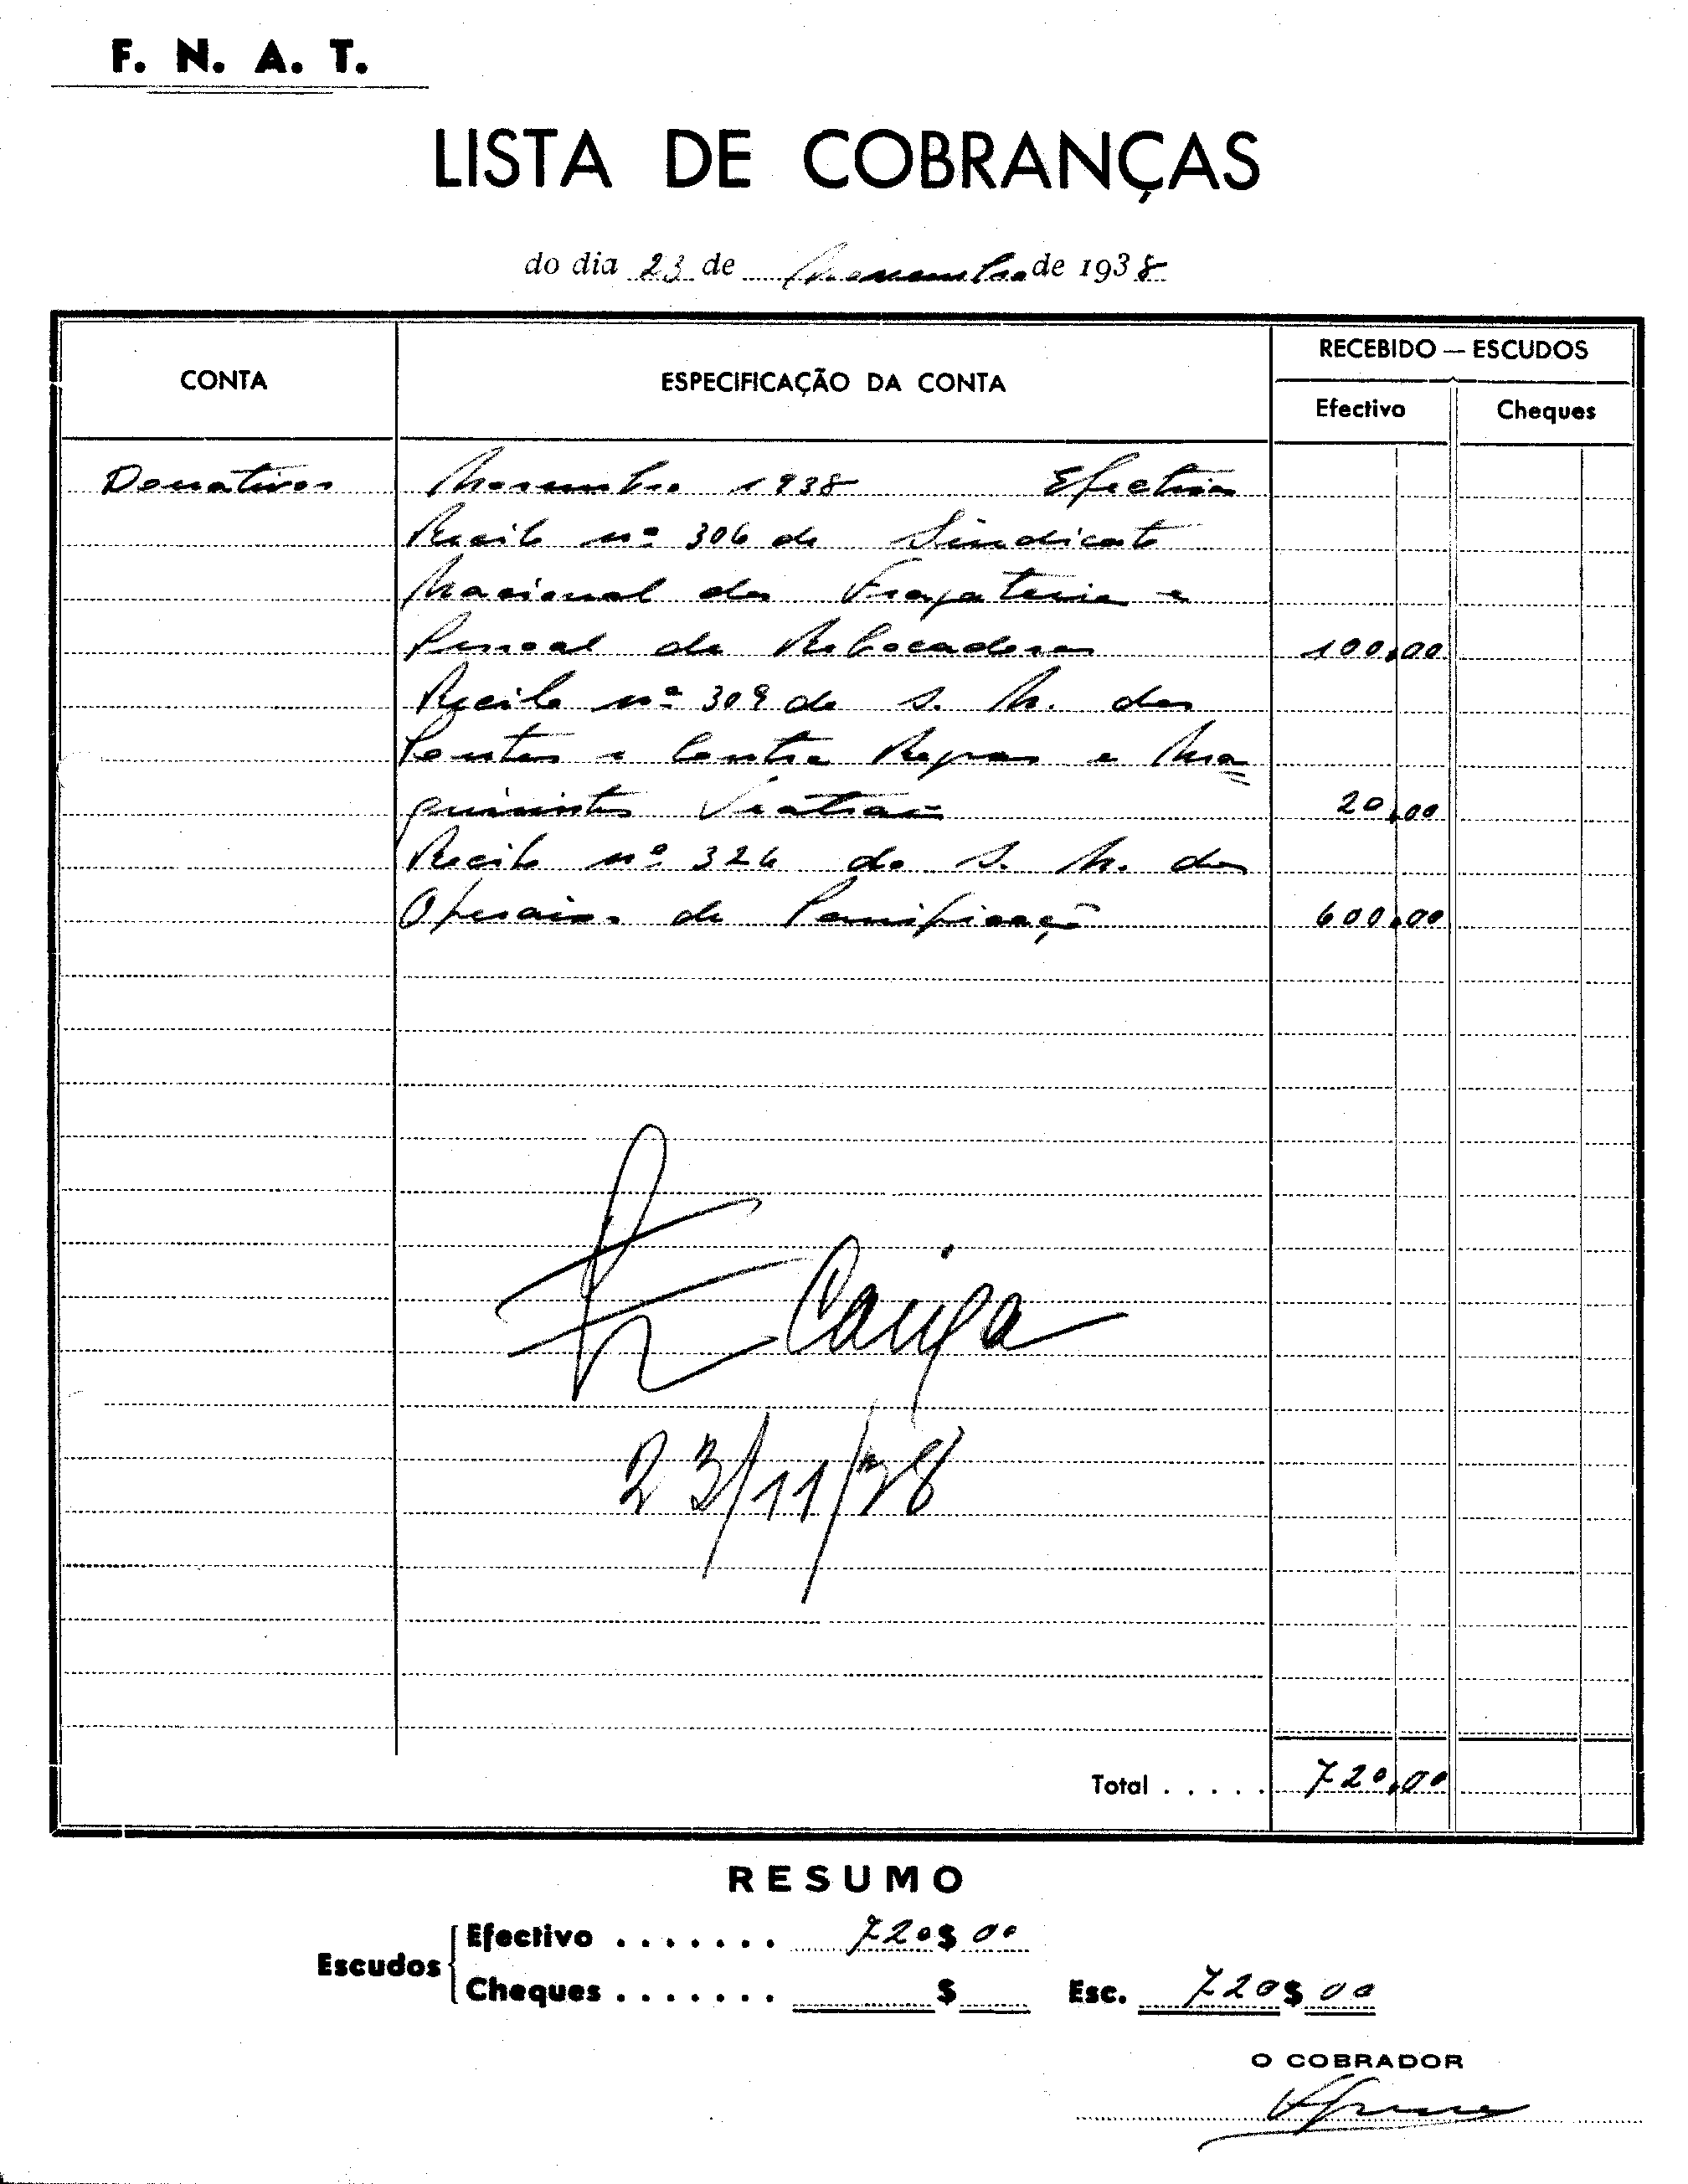 F. N. A. T.
LISTA DE COBRANÇAS
do dia 23 de Novembro de 1938
CONTA
ESPECIFICAÇÃO DA CONTA
RECEBIDO — ESCUDOS
Efectivo
Cheques
Donativos Novembro 1938 Efectivos
Recibo nº 306 do Sindicato
Nacional dos Fragateiros e
Pessoal de Rebocadores 100,00
Recibo nº 309 do S. N. dos
Pontos e Contra Regras e Ma=
quinistas Teatrais 20,00
Recibo nº 326 do S. N. dos
Operarios de Panificação 600,00
Caixa
23/11/38
Total . . . . . 720,00
RESUMO
Escudos
Efectivo . . . . . . . 720$00
Cheques . . . . . . . $
Esc. 720$00
O COBRADOR